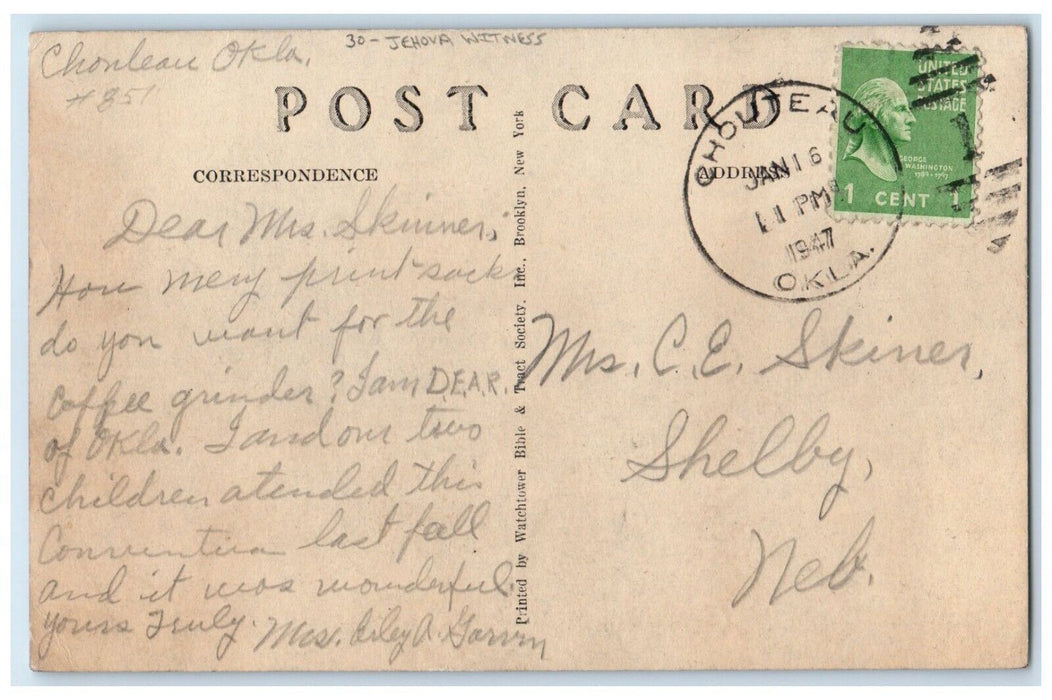 Chouteau Okla.
#851
30 - JEHOVA WITNESS
POST CARD
CORRESPONDENCE
ADDRESS
CHOUTEAU
JAN 16
11 PM
1947
OKLA.
UNITED
STATES
POSTAGE
GEORGE
WASHINGTON
1789-1797
1 CENT 1
Dear Mrs. Skinner;
How meny print sacks
do you want for the
Coffee grinder? I am D.E.A.R.
of Okla. I and our two
children atended this
Convention last fall
and it was wonderful.
yours Truly. Mrs. A. Garvin
Printed by Watchtower Bible & Tract Society, Inc., Brooklyn, New York
Mrs. C. E. Skiner,
Shelby,
Neb.